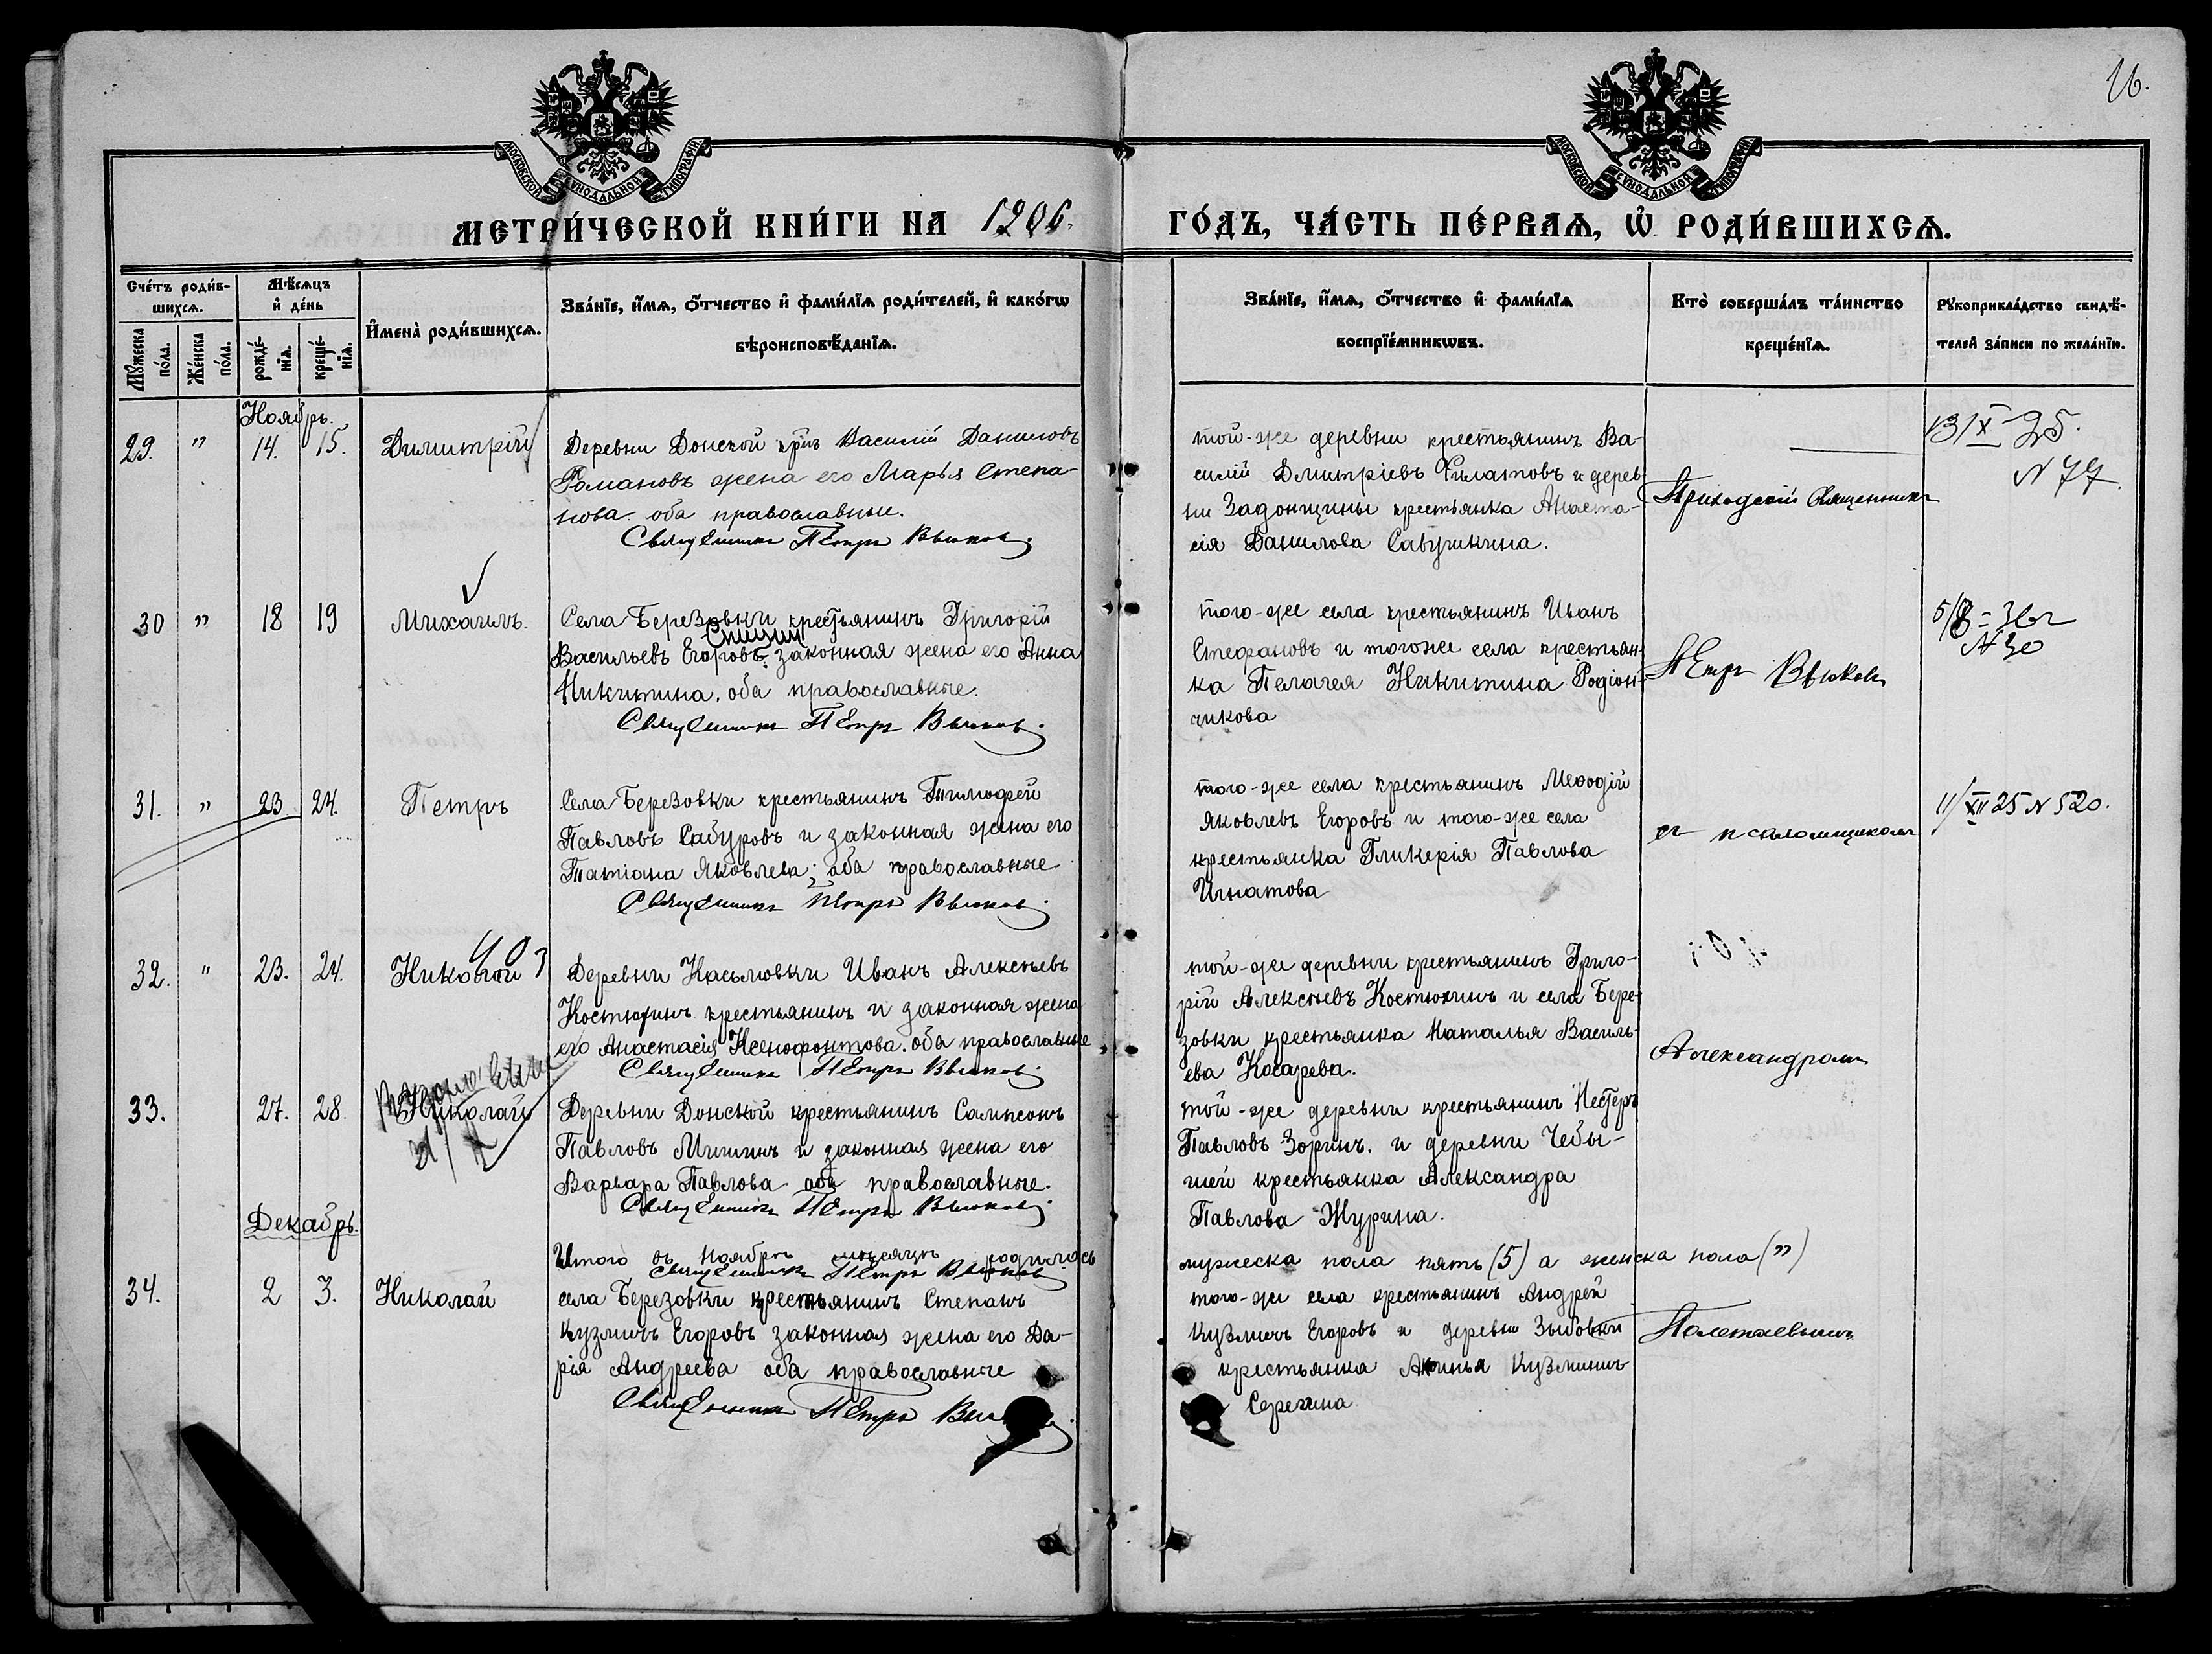 16.
МОСКОВСКОЙ СУНОДАЛЬНОЙ ТИПОГРАФІИ
МОСКОВСКОЙ СУНОДАЛЬНОЙ ТИПОГРАФІИ
МЕТРИ́ЧЕСКОЙ КНИ́ГИ НА 1906. ГО́ДЪ, ЧА́СТЬ ПЕ́РВАѦ, Ѡ РОДИ́ВШИХСѦ.
Сче́тъ роди́в-
шихсѧ.
Мꙋ́жеска по́ла.
Же́нска по́ла.
Мѣ́сѧцъ
и҆ де́нь
рожде́-
нїѧ.
креще́-
нїѧ.
И҆мена̀ роди́вшихсѧ.
Зва́нїе, и҆́мѧ, ѻ҆́тчество и҆ фами́лїѧ роди́телей, и҆ како́гѡ
вѣроисповѣ́данїѧ.
Зва́нїе, и҆́мѧ, ѻ҆́тчество и҆ фами́лїѧ
воспрїе́мникѡвъ.
Кто̀ соверша́лъ та́инство
креще́нїѧ.
Рꙋкоприкла́дство свидѣ́-
телей за́писи по жела́нїю.
Ноябрь.
29. " 14. 15. Димитрій
Деревни Донской кр-нъ Василій Даниловъ
Романовъ жена его Марья Степа-
нова оба православные.
Священникъ Петръ Быковъ.
той-же деревни крестьянинъ Ва-
силій Дмитріевъ Филатовъ и дерев-
ни Задонщины крестьянка Анаста-
сія Данилова Савушкина.
Приходскій Священникъ
13/X-25.
N 77.
30 " 18 19 Михаилъ.
Села Березовки крестьянинъ Григорій
Васильевъ Егоровъ. законная жена его Анна
Никитина, оба православные.
Священникъ Петръ Быковъ.
того-же села крестьянинъ Иванъ
Стефановъ и тогоже села крестьян-
ка Пелагея Никитина Родіон-
чикова
Петръ Быковъ
N 30
31. " 23. 24. Петръ
Села Березовки крестьянинъ Тимофей
Павловъ Сабуровъ и законная жена его
Татіана Яковлева; оба православные
Священникъ Петръ Быковъ.
того-же села крестьянинъ Меѳодій
Яковлевъ Егоровъ и того-же села
крестьянка Гликерія Павлова
Игнатова
съ псаломщикомъ
11/XII 25 N 520.
32. " 23. 24. Николай
403
Деревни Касьмовки Иванъ Алексѣевъ
Костюхинъ крестьянинъ и законная жена
его Анастасія Ксенофонтова. оба православные
Священникъ Петръ Быковъ.
той-же деревни крестьянинъ Григо-
рій Алексѣевъ Костюхинъ и села Бере-
зовки крестьянка Наталья Василь-
ева Косарева.
Александромъ
33. 27. 28. Николай
Деревни Донской крестьянинъ Сампсонъ
Павловъ Мишинъ и законная жена его
Варвара Павлова оба православные.
Священникъ Петръ Быковъ.
той-же деревни крестьянинъ Нестеръ
Павловъ Зоринъ. и деревни Чебы-
шей крестьянка Александра
Павлова Журина.
Декабрь.
Итого въ Ноябрѣ мѣсяцѣ родилось мужеска пола пять (5) а женска пола (")
Священникъ Петръ Быковъ
34. 2 3. Николай
села Березовки крестьянинъ Степанъ
Кузмичъ Егоровъ законная жена его Да-
рія Андреева оба православные
Священникъ Петръ
того-же села крестьянинъ Андрей
Кузмичъ Егоровъ и деревни Зыбовки
крестьянка Аксинья Кузминич
Серегина.
Полетаевымъ